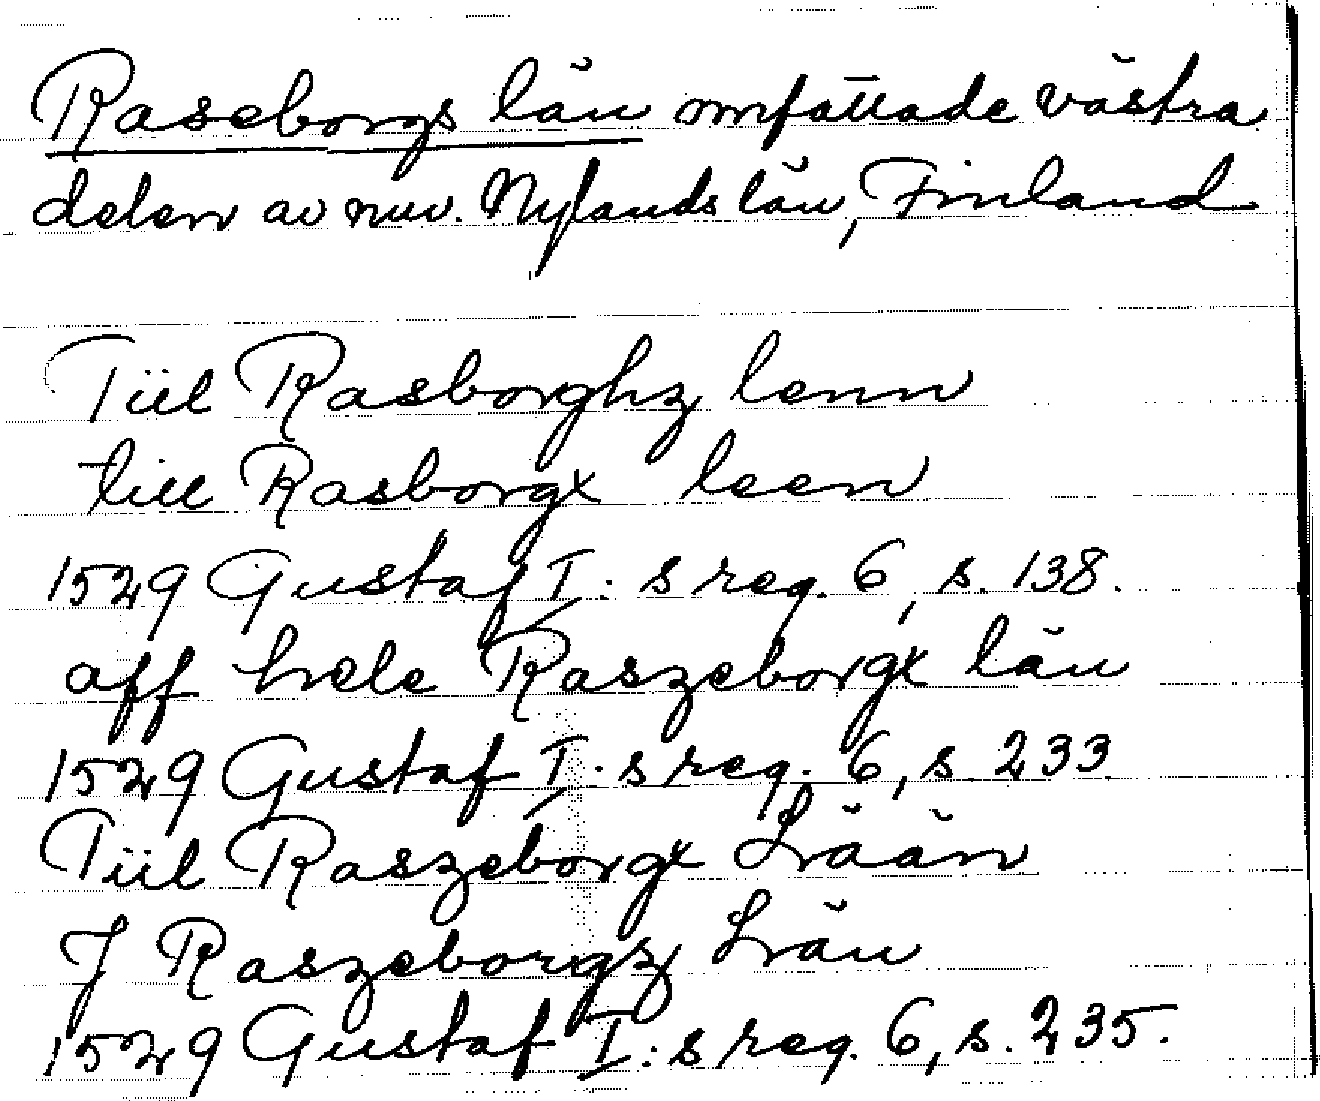 Raseborgs län omfattade västra
delen av nuv. Nylands län, Finland
Tiil Rasborghz lenn
till Rasborgx leen
1529 Gustaf I: s reg. 6, s. 138.
aff hele Raszeborgx län
1529 Gustaf I: s reg. 6, s. 233
Tiil Raszeborgx Lään
J Raszeborgsz Län
1529 Gustaf I: s reg. 6, s. 235.